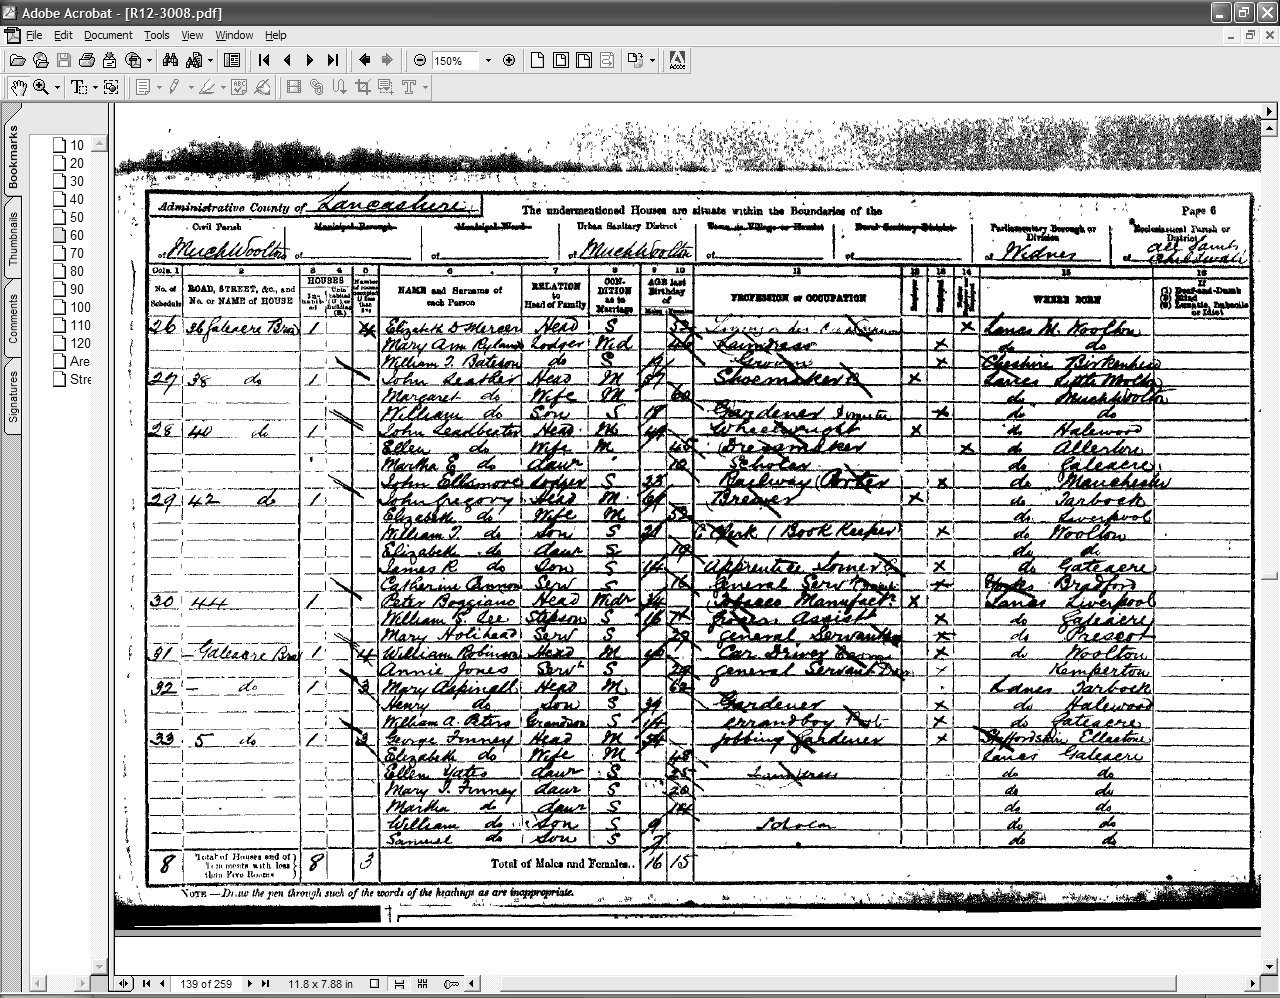 Adobe Acrobat - [R12-3008.pdf]
File Edit Document Tools View Window Help
150%
Bookmarks
Thumbnails
Comments
Signatures
10
20
30
40
50
60
70
80
90
100
110
120
Are
Stre
Administrative County of Lancashire The undermentioned Houses are situate within the Boundaries of the Page 6
Civil Parish Municipal Borough Municipal Ward Urban Sanitary District Town or Village or Hamlet Rural Sanitary District Parliamentary Borough or Division Ecclesiastical Parish or District
of Much Woolton of of of Much Woolton of of of Widnes of All Saints Childwall
Cols. 1 2 3 4 5 6 7 8 9 10 11 12 13 14 15 16
No. of Schedule ROAD, STREET, &c., and No. or NAME of HOUSE HOUSES NAME and Surname of each Person RELATION to Head of Family CONDITION as to Marriage AGE last Birthday of PROFESSION or OCCUPATION WHERE BORN
26 36 Gateacre Brow 1 4 Elizabeth D Mercer Head S 53 X Lancs M. Woolton
Mary Ann Ryland Lodger Wid 46 Laundress X do do
William T. Bateson do S 19 Groom X Cheshire Birkenhead
27 38 do 1 John Leather Head M 57 Shoemaker X Lancs Little Woolton
Margaret do Wife M 60 do Much Woolton
William do Son S 18 Gardener Domestic X do do
28 40 do 1 John Leadbeater Head M 49 Wheelwright X do Halewood
Ellen do Wife M 45 Dressmaker X do Allerton
Martha E do daur 10 Scholar do Gateacre
John Ellsmore Lodger S 23 Railway Porter X do Manchester
29 42 do 1 John Gregory Head M 61 Brewer X do Tarbock
Elizabeth do Wife M 52 do Liverpool
William T. do Son S 21 Clerk (Book Keeper) X do Woolton
Elizabeth do daur S 19 do do
James R do Son S 14 Apprentice Joiner X do Gateacre
Catherine Serv S 16 General Servt X Yorks Bradford
30 44 1 Peter Boggiano Head Widr 34 Tobacco Manufactr X Lancs Liverpool
William E. Lee Stepson S 16 Grocers Assist X do Gateacre
Mary Holihead Serv S 29 General Servant X do Prescot
31 - Gateacre Brow 1 4 William Robinson Head M 40 Car Driver X do Woolton
Annie Jones Servt S 20 General Servant Dom X Kemperton
32 - do 1 3 Mary Aspinall Head M 62 Lancs Tarbock
Henry do Son S 39 Gardener X do Halewood
William A. Peters Grandson S 14 errandboy X do Gateacre
33 5 do 1 3 George Finney Head M 54 Jobbing Gardener X Staffordshire Ellastone
Elizabeth do Wife M 48 Lancs Gateacre
Ellen Yates daur S 25 Laundress do do
Mary J. Finney daur S 20 do do
Martha do daur S 14 do do
William do Son S 9 Scholar do do
Samuel do Son S 7 do do
8 Total of Houses and of Tenements with less than Five Rooms 8 3 Total of Males and Females.. 16 15
NOTE.—Draw the pen through such of the words of the headings as are inappropriate.
139 of 259 11.8 x 7.88 in